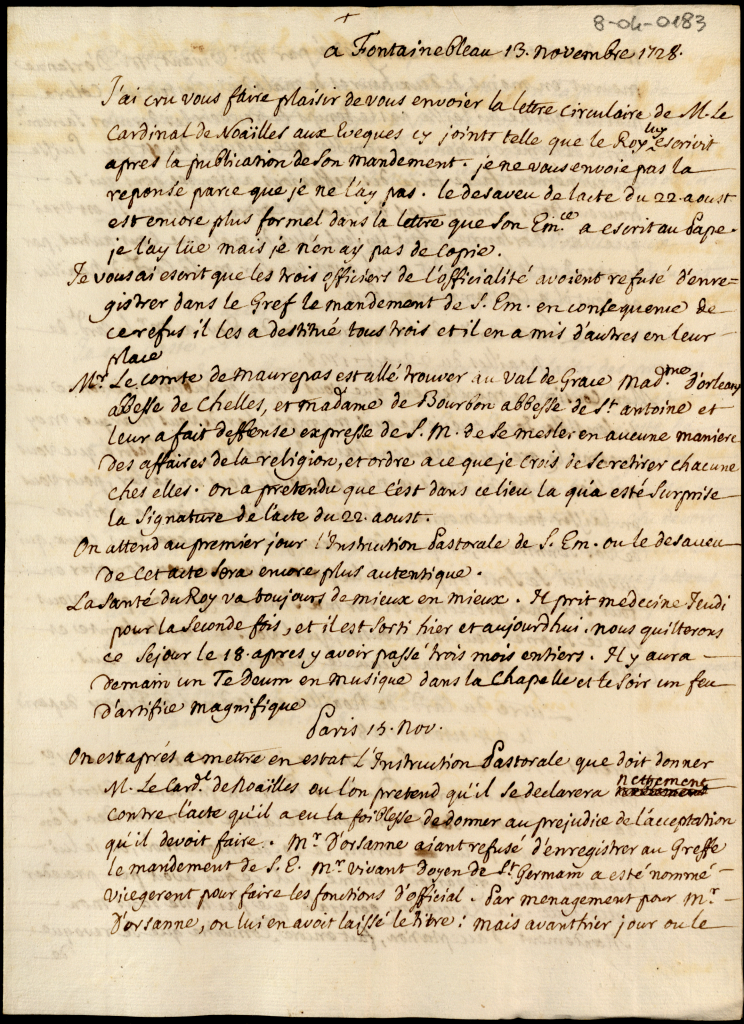 8-04-0183
+
a Fontainebleau 13. novembre 1728.
J'ai cru vous faire plaisir de vous envoier la lettre circulaire de M. Le
Cardinal de Noailles aux Eveques cy joints telle que le Roy luy escrivit
apres la publication de son mandement. je ne vous envoie pas la
reponse parce que je ne l'ay pas. le desaveu de l'acte du 22. aoust
est encore plus formel dans la lettre que son Em.ce a escrit au Pape.
je l'ay lüe mais je n'en ay pas de copie.
Je vous ai escrit que les trois officiers de l'officialité avoient refusé d'enre-
gistrer dans le Gref le mandement de S. Em. en consequence de
ce refus il les a destitué tous trois et il en a mis d'autres en leur
place
Mr. Le comte de maurepas est allé trouver au Val de Grace Mad.me d'orleans
abbesse de Chelles, et madame de Bourbon abbesse de St. antoine et
leur a fait deffense expresse de S. M. de se mesler en aucune maniere
des affaires de la religion, et ordre a ce que je crois de se retirer chacune
ches elles. on a pretendu que c'est dans ce lieu la qu'a esté surprise
la signature de l'acte du 22. aoust.
On attend au premier jour l'Instruction Pastorale de S. Em. ou le desaveu
de cet acte sera encore plus autentique.
La santé du Roy va toujours de mieux en mieux. Il prit medecine Jeudi
pour la seconde fois, et il est sorti hier et aujourdhui. nous quitterons
ce sejour le 18. apres y avoir passé trois mois entiers. Il y aura
demain un Te Deum en musique dans la Chapelle et le soir un feu
d'artifice magnifique
Paris 15. Nov.
On est aprés a mettre en estat l'Instruction Pastorale que doit donner
M. Le Card.l de Noailles ou l'on pretend qu'il se declarera nettement
contre l'acte qu'il a eu la foiblesse de donner au prejudice de l'acceptation
qu'il devoit faire. Mr. D'orsanne aiant refusé d'enregistrer au Greffe
le mandement de S. E. Mr. vivant Doyen de St. Germain a esté nommé
vicegerent pour faire les fonctions d'official. Par menagement pour Mr.
D'orsanne, on lui en avoit laissé le titre: mais avanthier jour ou le